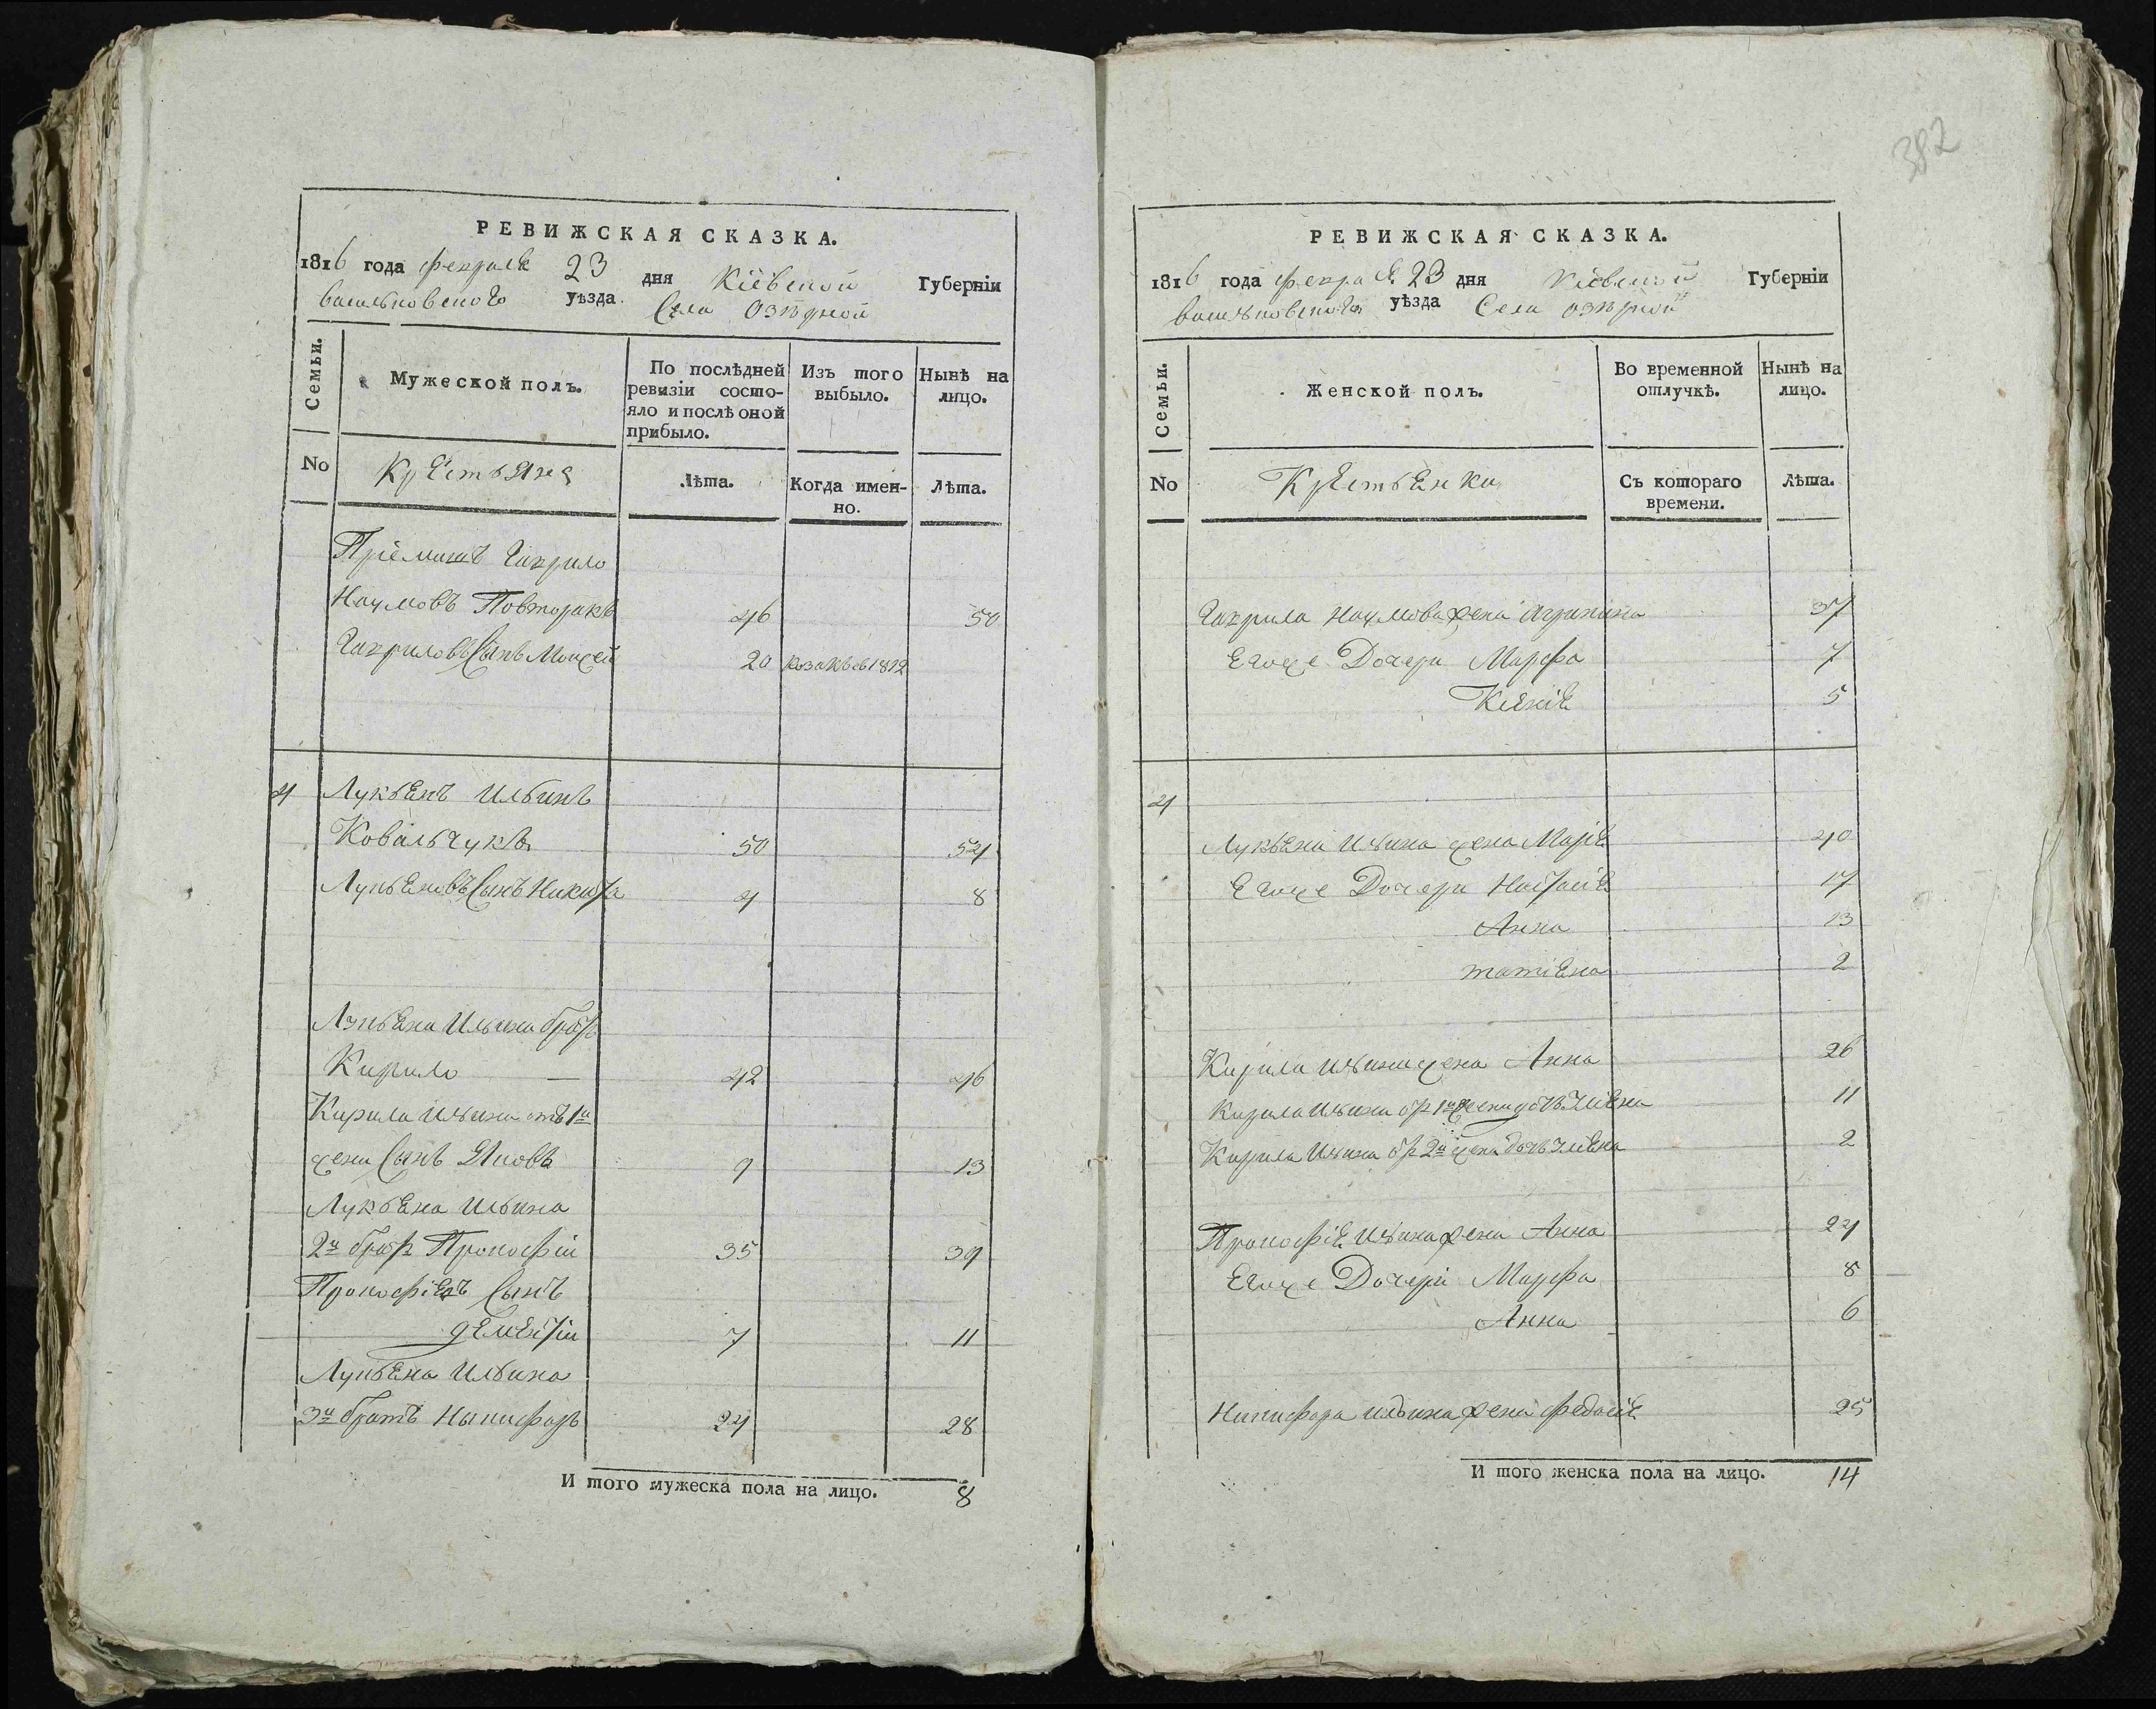 РЕВИЖСКАЯ СКАЗКА.
1816 года февраля 23 дня Кіевской Губерніи
васильковского уѣзда. Села Озѣрной
Семьи.
Мужеской полъ.
По послѣдней ревизіи состояло и послѣ оной прибыло.
Изъ того выбыло.
Нынѣ на лицо.
No
Крестьяня
Лѣта.
Когда именно.
Лѣта.
Пріемишъ Гаврило
Наумовъ Повторакъ 46 50
Гавриловъ Сынъ Моисей 20 козакъ въ 1812
4 Лукьянъ Ильинъ
Ковальчукъ 50 54
Лукьяновъ Сынъ Никита 4 8
Лукьяна Ильина братъ
Кирило — 42 46
Кирила Ильина отъ 1й
жени Сынъ Яковъ 9 13
Лукьяна Ильина
2й братъ Прокофій 35 39
Прокофіевъ Сынъ
дементій 7 11
Лукьяна Ильина
3й братъ Никифоръ 24 28
И того мужеска пола на лицо. 8
382
РЕВИЖСКАЯ СКАЗКА.
1816 года февраля 23 дня Кіевской Губерніи
васильковского уѣзда Села озѣрной
Семьи.
Женской полъ.
Во временной отлучкѣ.
Нынѣ на лицо.
No
Крестьянки
Съ котораго времени.
Лѣта.
Гаврила Наумова жена Агрипина 37
Егоже Дочери Марфа 7
Ксенія 5
4
Лукьяна Ильина жена Марія 40
Егоже Дочери Настасія 17
Анна 13
татіяна 2
Кирила Ильина жена Анна 26
Кирила Ильина отъ 1й жени дочь 11
Кирила Ильина отъ 2й жени дочь 2
Прокофія Ильина жена Анна 24
Егоже Дочери Марфа 8
Анна 6
Никифора ильина жена федосія 25
И того женска пола на лицо. 14